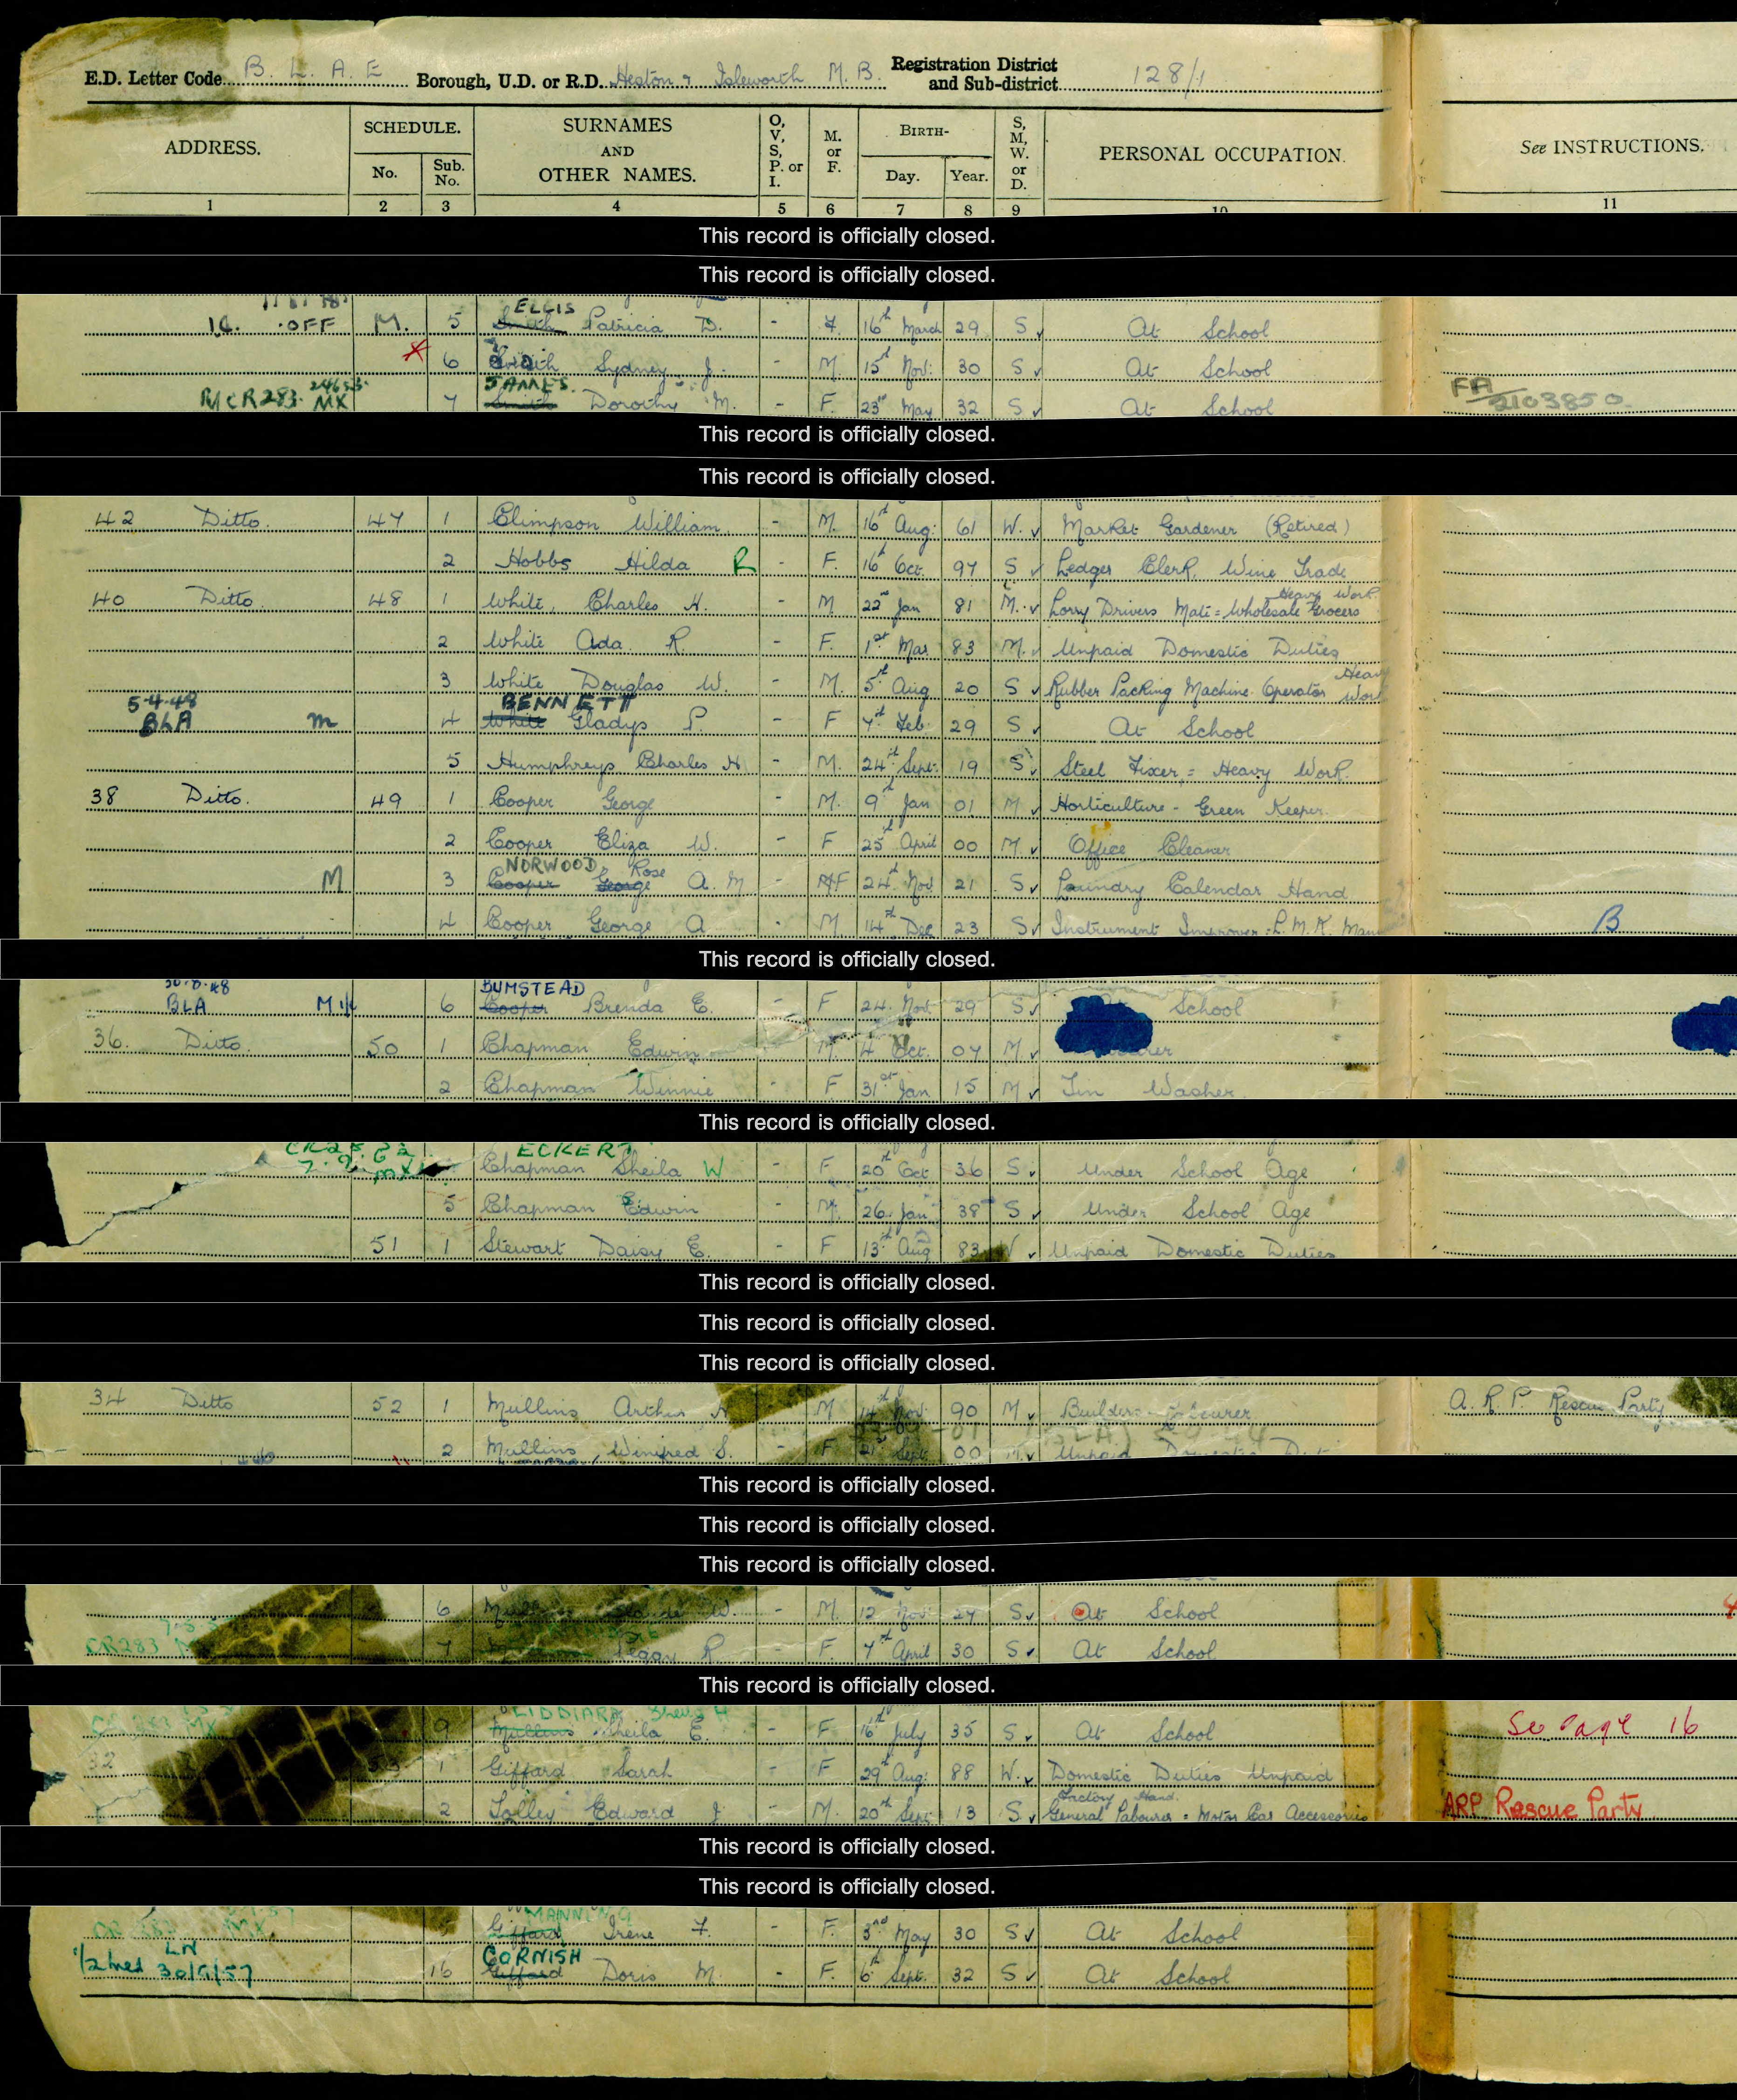 E.D. Letter Code B. L. A. E Borough, U.D. or R.D. Heston & Isleworth M. B. Registration District and Sub-district 128/1
ADDRESS. SCHEDULE. No. Sub. No. SURNAMES AND OTHER NAMES. O, V, S, P. or I. M. or F. BIRTH- Day. Year. S, M, W. or D. PERSONAL OCCUPATION. See INSTRUCTIONS.
1 2 3 4 5 6 7 8 9 10 11
This record is officially closed.
This record is officially closed.
ELLIS
OFF M. 5 Smith Patricia D. - F. 16th March 29 S At School
6 Smith Sydney J. - M. 15th Nov: 30 S At School
JAMES.
R/CR283. MX 7 Smith Dorothy M. - F. 23rd May 32 S At School FA/2103850
This record is officially closed.
This record is officially closed.
42 Ditto. 47 1 Climpson William - M. 16th Aug: 61 W. Market Gardener (Retired)
2 Hobbs Hilda R - F. 16th Oct. 97 S Ledger Clerk. Wine Trade
40 Ditto. 48 1 White, Charles H. - M 22nd Jan 81 M. Lorry Drivers Mate = Wholesale Grocers Heavy Work
2 White Ada R. - F. 1st Mar 83 M. Unpaid Domestic Duties
3 White Douglas W. - M. 5th Aug 20 S Rubber Packing Machine Operator Heavy Work
5-4-48 BENNETT
BLA m 4 White Gladys P. - F 7th Feb 29 S At School
5 Humphreys Charles H - M. 24th Sept. 19 S Steel Fixer = Heavy Work.
38 Ditto. 49 1 Cooper George - M. 9th Jan 01 M Horticulture - Green Keeper.
2 Cooper Eliza W. - F 25th April 00 M Office Cleaner
NORWOOD Rose
M 3 Cooper George A. M - F 24th Nov 21 S Laundry Calendar Hand
4 Cooper George A - M. 14th Dec 23 S Instrument Improver
B
This record is officially closed.
BUMSTEAD
BLA M 6 Cooper Brenda E. - F 24. Nov 29 S School
36. Ditto. 50 1 Chapman Edwin M. 4 Oct. 07 M
2 Chapman Winnie - F 31st Jan 15 M Tin Washer.
This record is officially closed.
ECKERT
Chapman Sheila W - F 20th Oct 36 S Under School Age
5 Chapman Edwin - M. 26. Jan 38 S Under School Age
51 1 Stewart Daisy E. - F 13th Aug 83 Unpaid Domestic Duties
This record is officially closed.
This record is officially closed.
This record is officially closed.
34 Ditto 52 1 Mullins Arthur H M 14th Nov. 90 M Builders Labourer A. R. P. Rescue Party
2 Mullins, Winifred S. - F 21st Sept 00 Unpaid Domestic
This record is officially closed.
This record is officially closed.
This record is officially closed.
6 W. - M. 12 Nov 27 S At School
CR283 7 Peggy R. - F. 7th April 30 S At School
This record is officially closed.
LIDDIARD Sheila H
CR 283 MX 9 Mullins Sheila E. - F 16th July 35 S At School See Page 16
32 1 Giffard Sarah - F 29th Aug: 88 W. Domestic Duties Unpaid
Factory Hand.
2 Tolley Edward J. - M. 20th Sept 13 S General Labourer = Motor Car Accessories ARP Rescue Party
This record is officially closed.
This record is officially closed.
MANNING
CR 283 MX 5 Giffard Irene F. - F. 3rd May 30 S At School
LN CORNISH
30/9/57 16 Giffard Doris M. - F. 6th Sept. 32 S At School